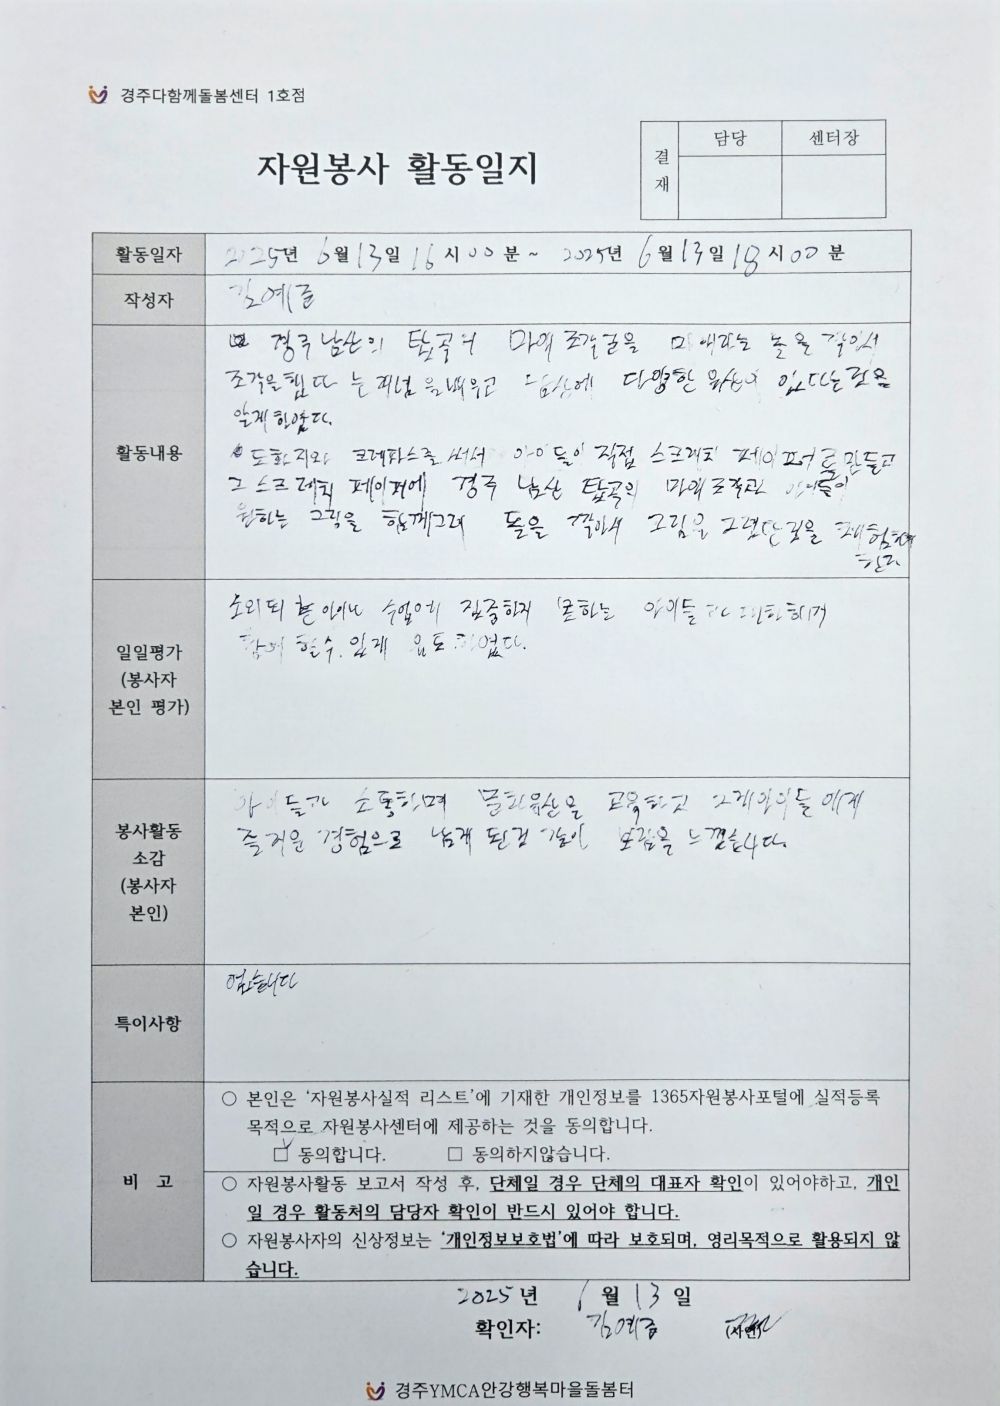 경주다함께돌봄센터 1호점
자원봉사 활동일지
결재
담당
센터장
활동일자
2025년 6월 13일 16시 00분 ~ 2025년 6월 13일 18시 00분
작성자
김예
활동내용
경주 남산의 탑곡의 마애 조각군을 마애라는 돌을 깎아서
조각을 했다 는 개념을 배우고 남산에 다양한 유산이 있다는 것을
알게 하였다.
도화지와 크레파스를 써서 아이들이 직접 스크래치 페이퍼를 만들고
그 스크래치 페이퍼에 경주 남산 탑곡의 마애조각과 아이들이
원하는 그림을 함께그려 돌을 깎아서 그림을 그렸단 것을 체험하게
한다
일일평가
(봉사자
본인 평가)
수업에 집중하지 못하는 아이들과
참여 할수 있게 유도 하였다.
봉사활동
소감
(봉사자
본인)
아이들과 소통하며 문화유산을 교육하고 그게 아이들에게
즐거운 경험으로 남게 된것 같아 보람을 느꼈습니다.
특이사항
없습니다
비 고
○ 본인은 ‘자원봉사실적 리스트’에 기재한 개인정보를 1365자원봉사포털에 실적등록
목적으로 자원봉사센터에 제공하는 것을 동의합니다.
☑ 동의합니다. □ 동의하지않습니다.
○ 자원봉사활동 보고서 작성 후, 단체일 경우 단체의 대표자 확인이 있어야하고, 개인
일 경우 활동처의 담당자 확인이 반드시 있어야 합니다.
○ 자원봉사자의 신상정보는 ‘개인정보보호법’에 따라 보호되며, 영리목적으로 활용되지 않
습니다.
2025년 6월 13일
확인자: 김예 (사인)
경주YMCA안강행복마을돌봄터